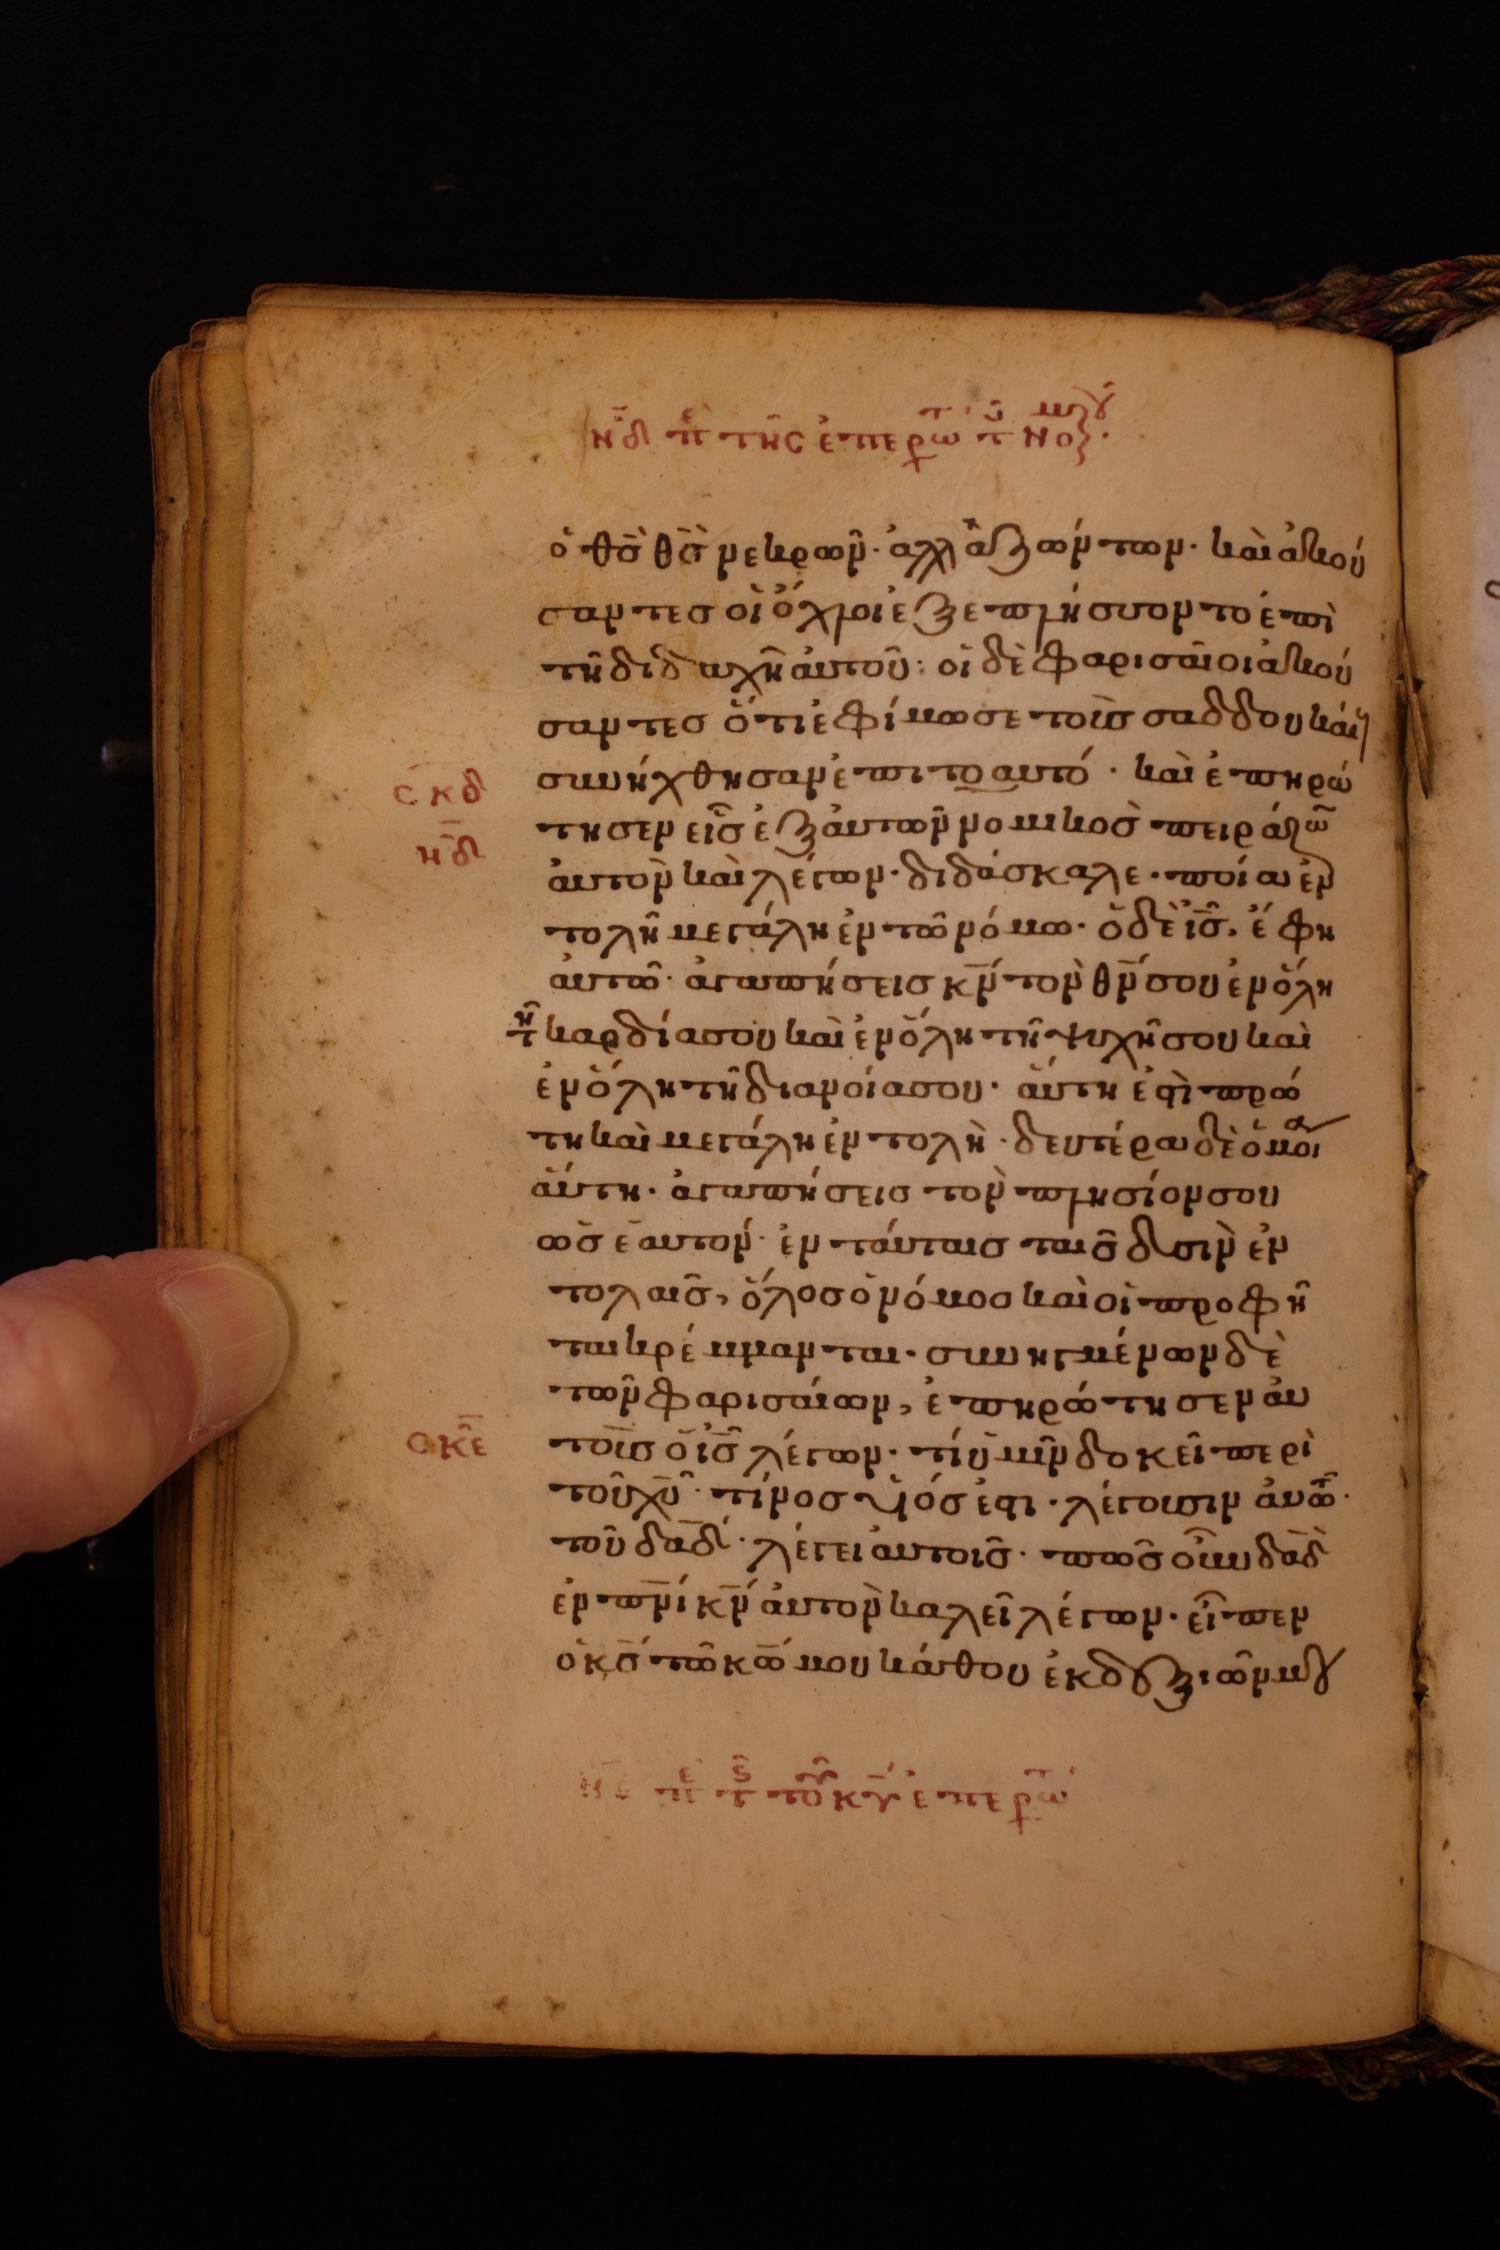 νδ πε της επερω τ νομικου
ὁ θσ θσ νεκρῶν· ἀλλὰ ζώντων· καὶ ἀκού
σαντεσ οἱ ὄχλοι ἐξεπλήσσοντο ἐπὶ
τῆ διδαχῆ ἀυτοῦ: οἱ δὲ φαρισαῖοι ἀκού
σαντεσ ὅτι ἐφίμωσε τοὺσ σαδδουκάι
συνήχθησαν ἐπιτοαυτό· καὶ ἐπηρώ
σκδ
τησεν εἷσ ἐξ ἀυτῶν νομικοσ πειράζω
νδ
ἀυτὸν καὶ λέγων· διδάσκαλε· ποία ἐν
τολὴ μεγάλη ἐν τῶ νόμω· ὁ δὲ ισ, ἔφη
ἀυτῶ· ἀγαπήσεισ κν τὸν θν σου ἐν ὅλη
τῆ καρδία σου καὶ ἐν ὅλη τῆ ψυχῆ σου καὶ
ἐν ὅλη τῆ διανοία σου· ἅυτη ἐστὶ πρώ
τη καὶ μεγάλη ἐντολὴ· δευτέρα δὲ ὁμοία
ἅυτη· ἀγαπήσεισ τὸν πλησίον σου
ὡσ ἑαυτόν· ἐν τάυταισ ταισ δυσὶν ἐν
τολαισ, ὅλοσ ὁ νόμοσ καὶ οἱ προφῆ
ται κρέμμανται· συνηγμένων δὲ
τῶν φαρισάιων, ἐπηρώτησεν ἀυ
τοὺσ ὁ ισ λέγων· τί ὑμῖν δοκεῖ περὶ
σκε
τοῦ χυ· τίνοσ υἱόσ ἐστι· λέγουσιν ἀυτῶ·
τοῦ δαδ· λέγει ἀυτοισ· πῶσ οὖν δαδ
ἐν πνι κν ἀυτὸν καλεῖ λέγων· εἶπεν
ὁ κσ τῶ κω μου κάθου ἐκ δεξιῶν μου
νε πε τς τοῦ κυ ἐπερω